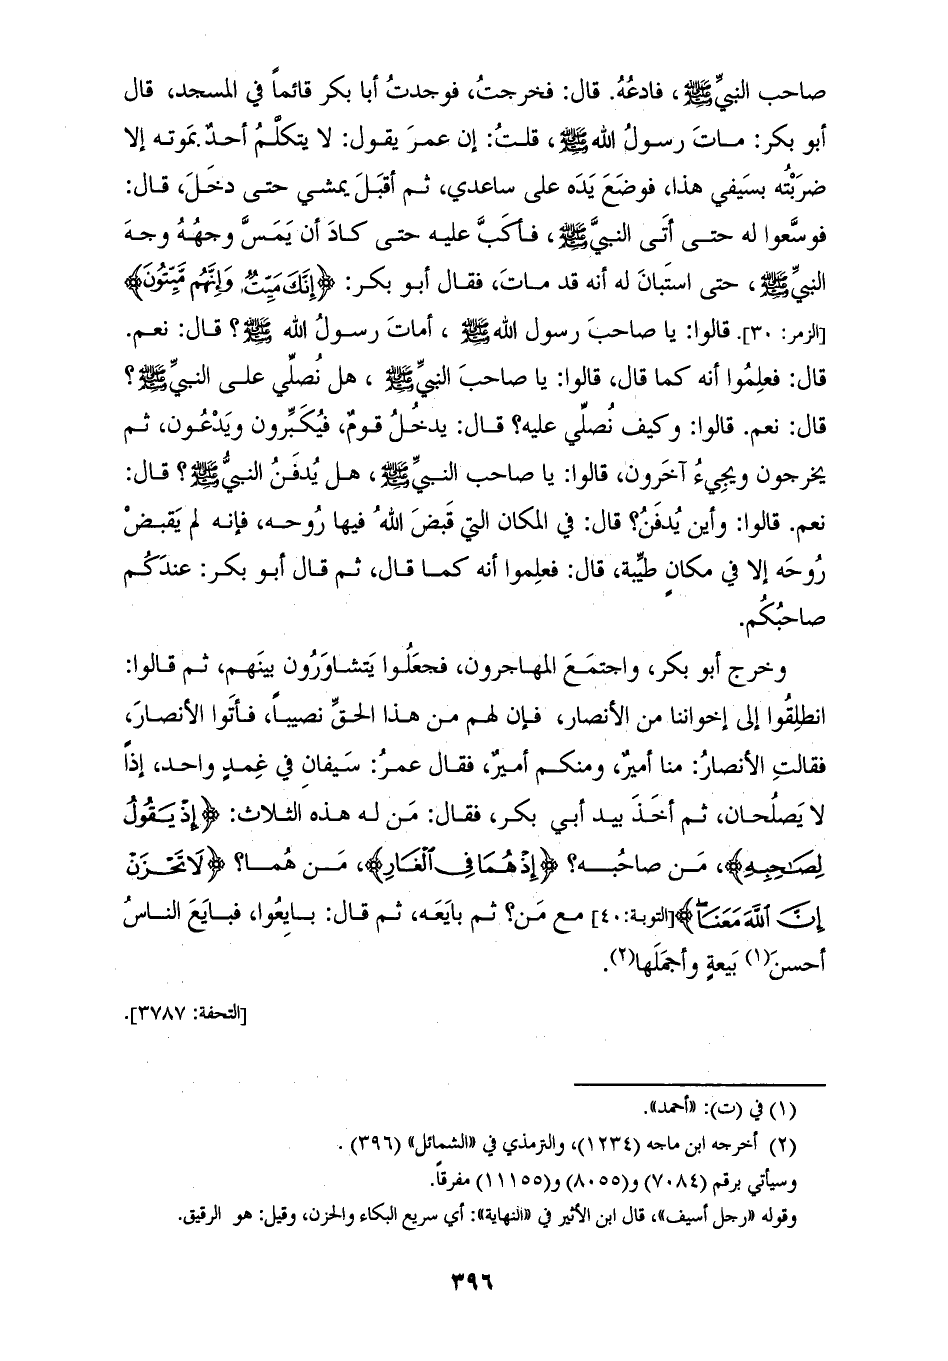 صاحب النبيِّ ﷺ، فادعُهُ. قال: فخرجتُ، فوجدتُ أبا بكر قائماً في المسجد، قال
أبو بكر: مـاتَ رسـولُ الله ﷺ، قلـتُ: إن عمـرَ يقـول: لا يتكلَّـمُ أحـدٌ بموتـه إلا
ضرَبْتُه بسَيفي هذا، فوضَعَ يَدَه على ساعدي، ثـم أقبَلَ يمشي حتى دخَلَ، قال:
فوسَّعوا له حتـى أتَى النبيَّ ﷺ، فـأكَبَّ عليـه حتـى كـادَ أن يَمَـسَّ وجهُـهُ وجـهَ
النبيِّ ﷺ، حتى استَبانَ له أنه قد مـاتَ، فقـال أبـو بكـر: ﴿إِنَّكَ مَيِّتٌ وَإِنَّهُم مَّيِّتُونَ﴾
[الزمر: ٣٠]. قالوا: يا صاحبَ رسول الله ﷺ، أماتَ رسولُ الله ﷺ؟ قـال: نعـم.
قال: فعلِمُوا أنه كما قال، قالوا: يا صاحبَ النبيِّ ﷺ، هل نُصلِّي علـى النبيِّ ﷺ؟
قال: نعم. قالوا: وكيف نُصلِّي عليه؟ قـال: يدخُـلُ قـومٌ، فيُكَبِّرون ويَدْعُـون، ثـم
يخرجون ويجيءُ آخَرون، قالوا: يا صاحب النبيِّ ﷺ، هـل يُدفَـنُ النبيُّ ﷺ؟ قـال:
نعم. قالوا: وأين يُدفَنُ؟ قال: في المكان التي قَبضَ اللهُ فيها رُوحـه، فإنـه لم يَقبـضْ
رُوحَه إلا في مكانٍ طيِّبة، قال: فعلِموا أنه كمـا قال، ثـم قال أبـو بكـر: عندَكُـم
صاحبُكُم.
وخرج أبو بكر، واجتمَـعَ المهـاجرون، فجعَلُـوا يَتشـاوَرُون بينَهـم، ثـم قـالوا:
انطلِقُوا إلى إخواننا من الأنصار، فـإن لهـم مـن هـذا الحـقِّ نصيبـاً، فـأتَوا الأنصـارَ،
فقالتِ الأنصارُ: منا أميرٌ، ومنكـم أمـيرٌ، فقـال عمـرُ: سَيفانِ في غِمـدٍ واحـد، إذاً
لا يَصلُحـان، ثـم أخَـذَ بيـد أبـي بكـر، فقـال: مَـن لـه هـذه الثـلاث: ﴿إِذْ يَـقُولُ
لِصَـٰحِبِهِ﴾، مَـن صاحبُـه؟ ﴿إِذْ هُمَا فِي ٱلْغَارِ﴾، مَـن هُمـا؟ ﴿لَا تَحْـزَنْ
إِنَّ ٱللَّهَ مَعَنَا﴾ [التوبة: ٤٠] مع مَن؟ ثـم بايَعَـه، ثـم قـال: بـايِعُوا، فبـايَعَ النـاسُ
أحسنَ(١) بَيعةٍ وأجمَلَها(٢).
[التحفة: ٣٧٨٧].
(١) في (ت): «أحمد».
(٢) أخرجه ابن ماجه (١٢٣٤)، والترمذي في «الشمائل» (٣٩٦) .
وسيأتي برقم (٧٠٨٤) و(٨٠٥٥) و(١١١٥٥) مفرقاً.
وقوله «رجل أسيف»، قال ابن الأثير في «النهاية»: أي سريع البكاء والحزن، وقيل: هو الرقيق.
٣٩٦